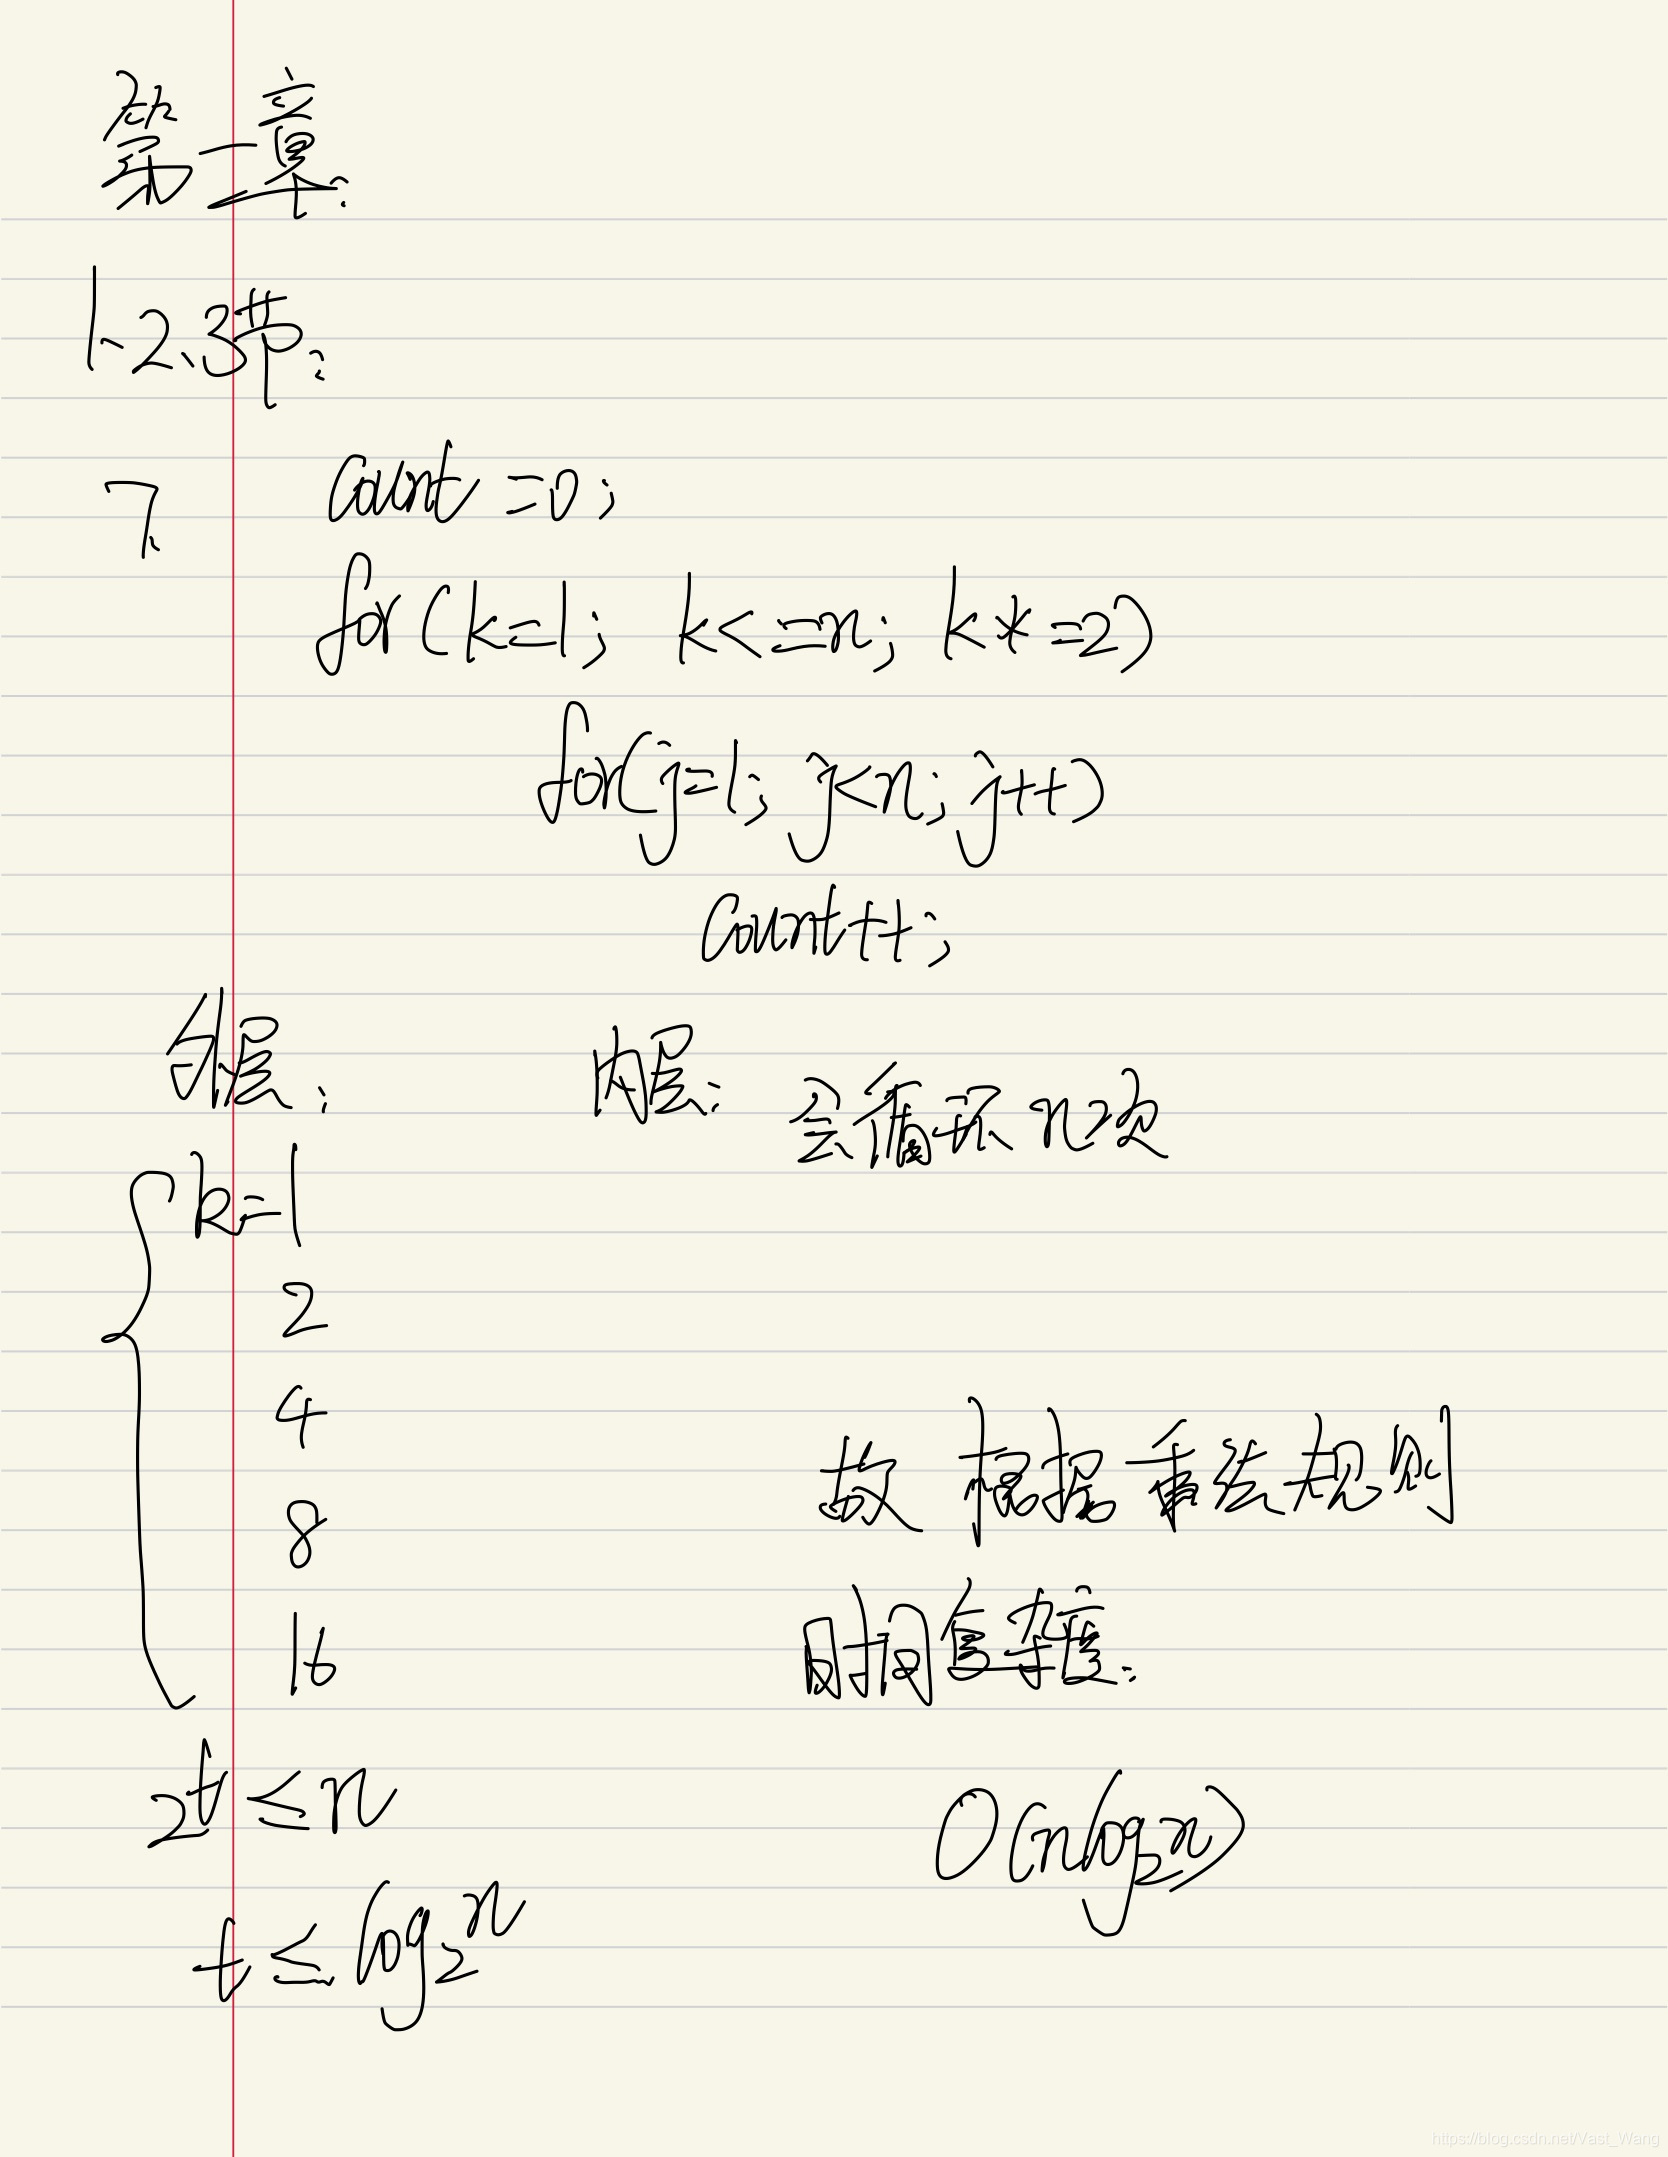 第一章:
1、2、3节:
7. count=0;
for(k=1; k<=n; k*=2)
for(j=1; j<n; j++)
count++;
外层: 内层: 会循环n次
k=1
2
4
8
16
故 根据乘法规则
时间复杂度:
2^t≤n
O(nlog₂n)
t≤log₂n
https://blog.csdn.net/Vast_Wang